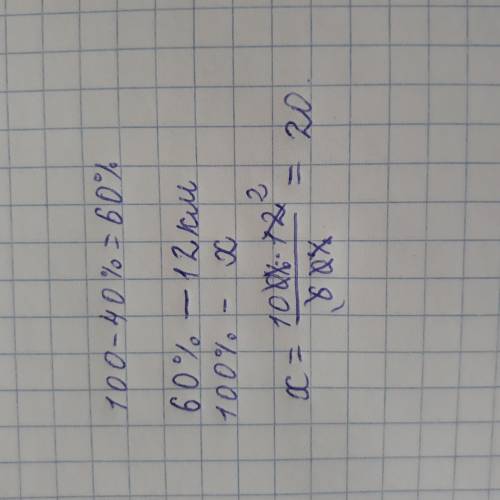 100-40%=60%
60% - 12км
100% - x
x = 100%·12² / 60% = 20.